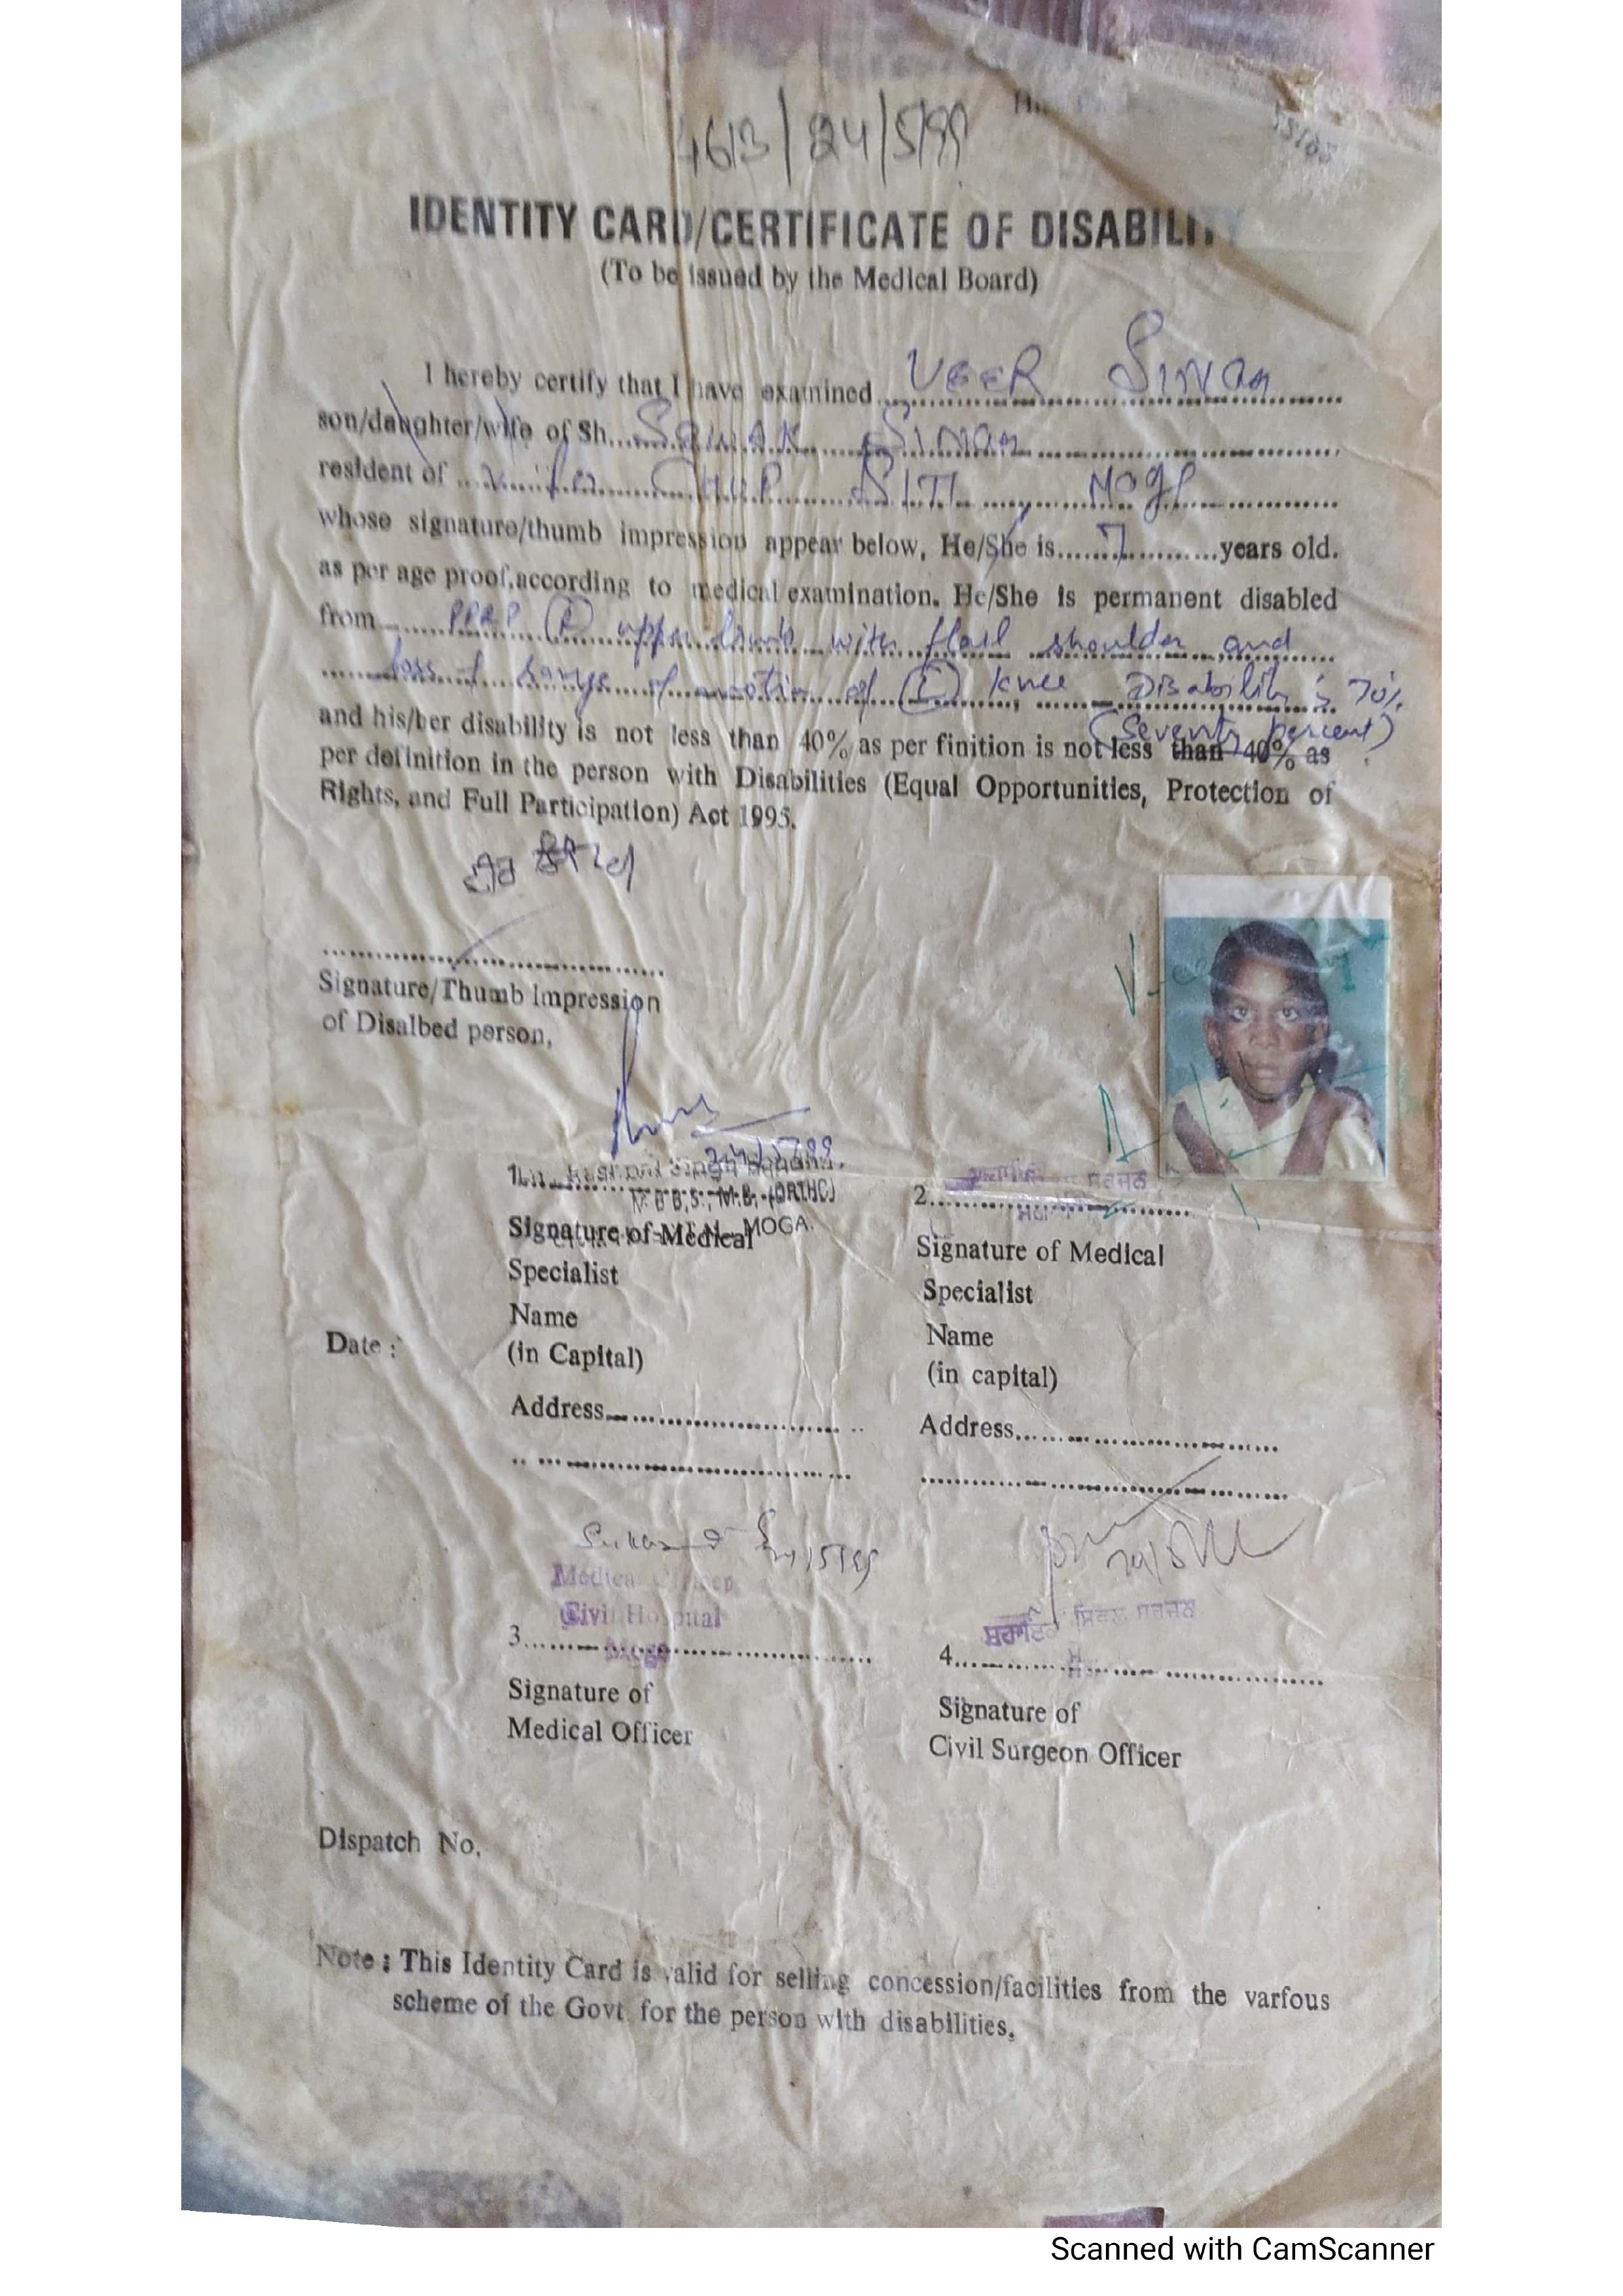 4613/24/5/99
IDENTITY CARD/CERTIFICATE OF DISABILITY
(To be issued by the Medical Board)
I hereby certify that I have examined VEER SINGH
son/daughter/wife of Sh. SINGH
resident of
whose signature/thumb impression appear below, He/She is 7 years old.
as per age proof, according to medical examination. He/She is permanent disabled
from PPRP upper limb with flail shoulder and
loss of range of motion of knee Disability is 70%
(Seventy percent)
and his/her disability is not less than 40% as per finition is not less than 40% as
per definition in the person with Disabilities (Equal Opportunities, Protection of
Rights, and Full Participation) Act 1995.
Signature/Thumb Impression
of Disalbed person,
24/5/99
1. Singh
M.B.B.S., M.S. (ORTHO)
MOGA.
Signature of Medical
Specialist
Name
(in Capital)
Address
2. ਸਰਜਨ
Signature of Medical
Specialist
Name
(in capital)
Address
Date :
24/5/99
Medical Officer
Civil Hospital
Moga
3.
Signature of
Medical Officer
ਸਿਵਲ ਸਰਜਨ
4.
Signature of
Civil Surgeon Officer
Dispatch No.
Note : This Identity Card is valid for selling concession/facilities from the varfous
scheme of the Govt. for the person with disabilities.
Scanned with CamScanner